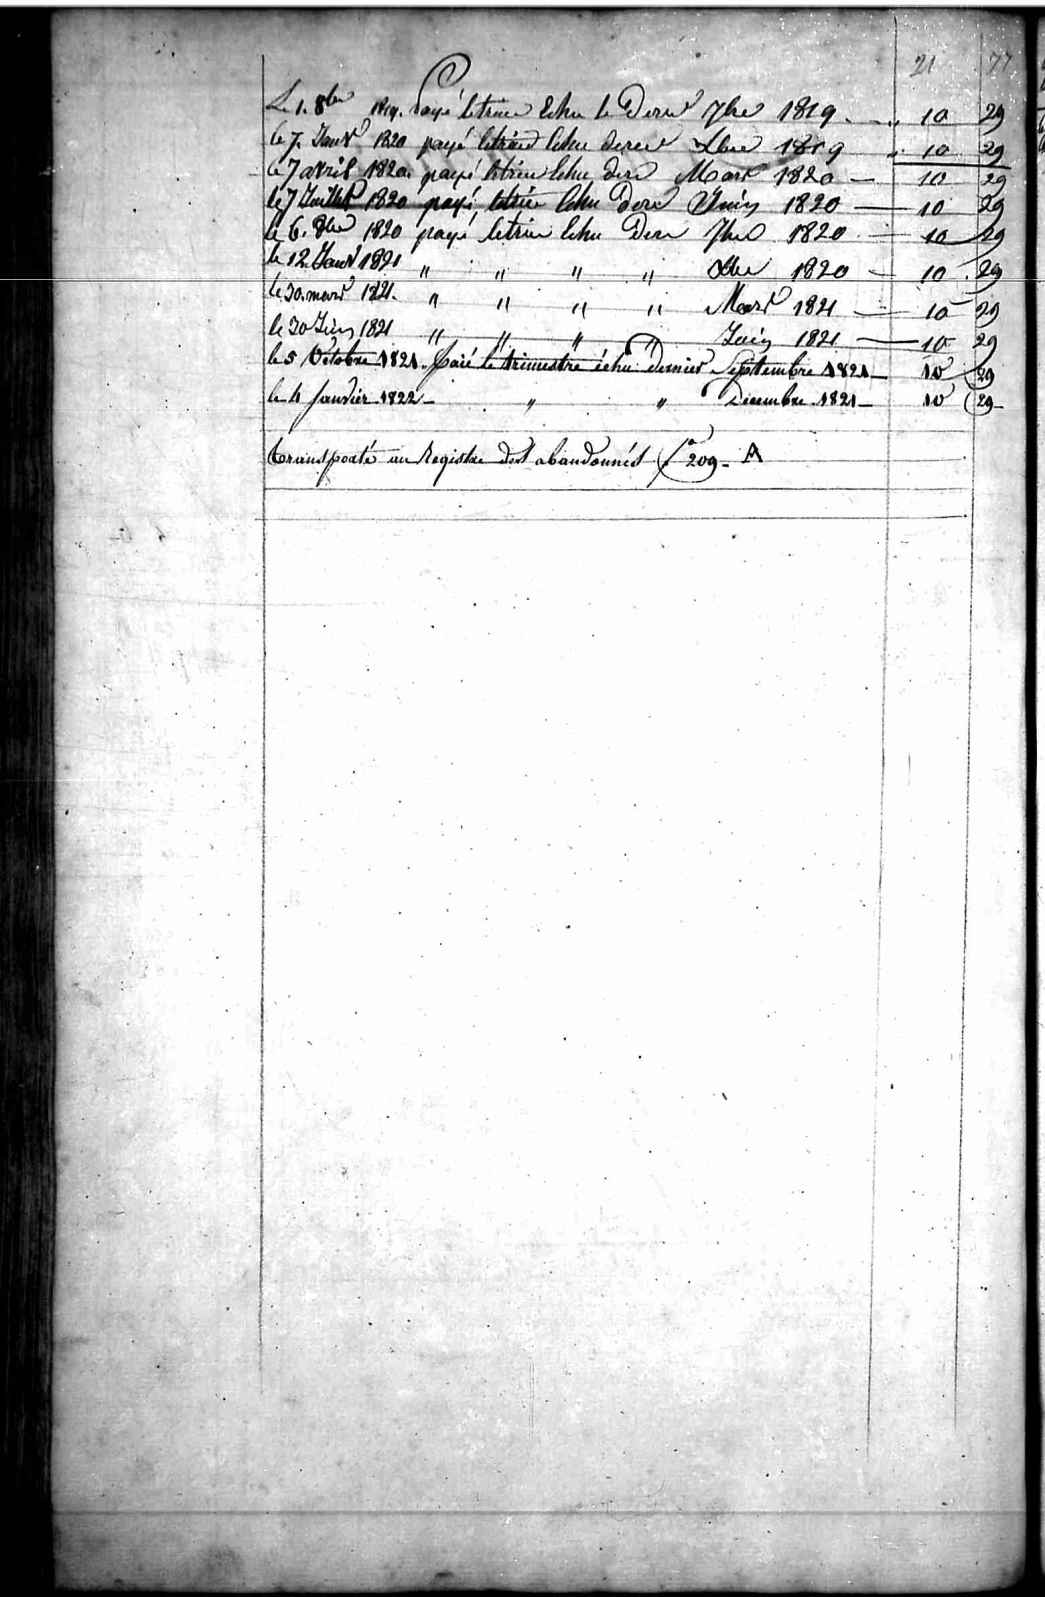 21 77
Le 1. 8bre 1819. payé letrim Echu le Dern 7bre 1819 " 10 29
le 7. Janv 1820 payé letrim Echu dern Xbre 1819 " 10 29
le 7 avril 1820. payé letrim Echu dern Mars 1820 — 10 29
le 7 Juillet 1820 payé letrim Echu Dern Juin 1820 — 10 29
le 6. 8bre 1820 payé letrim Echu Dern 7bre 1820 — 10 29
le 12. Janv 1821 " " " " Xbre 1820 — 10 . 29
le 30. mars 1821. " " " " Mars 1821 — 10 29
le 30 Juin 1821 " " " " Juin 1821 — 10 29
le 5 Octobre 1821. paié le trimestre échu dernier Septembre 1821 — 10 29
le 4 Janvier 1822 — " " Décembre 1821 — 10 29 -
transporté au Registre des abandonnés f° 209 - A